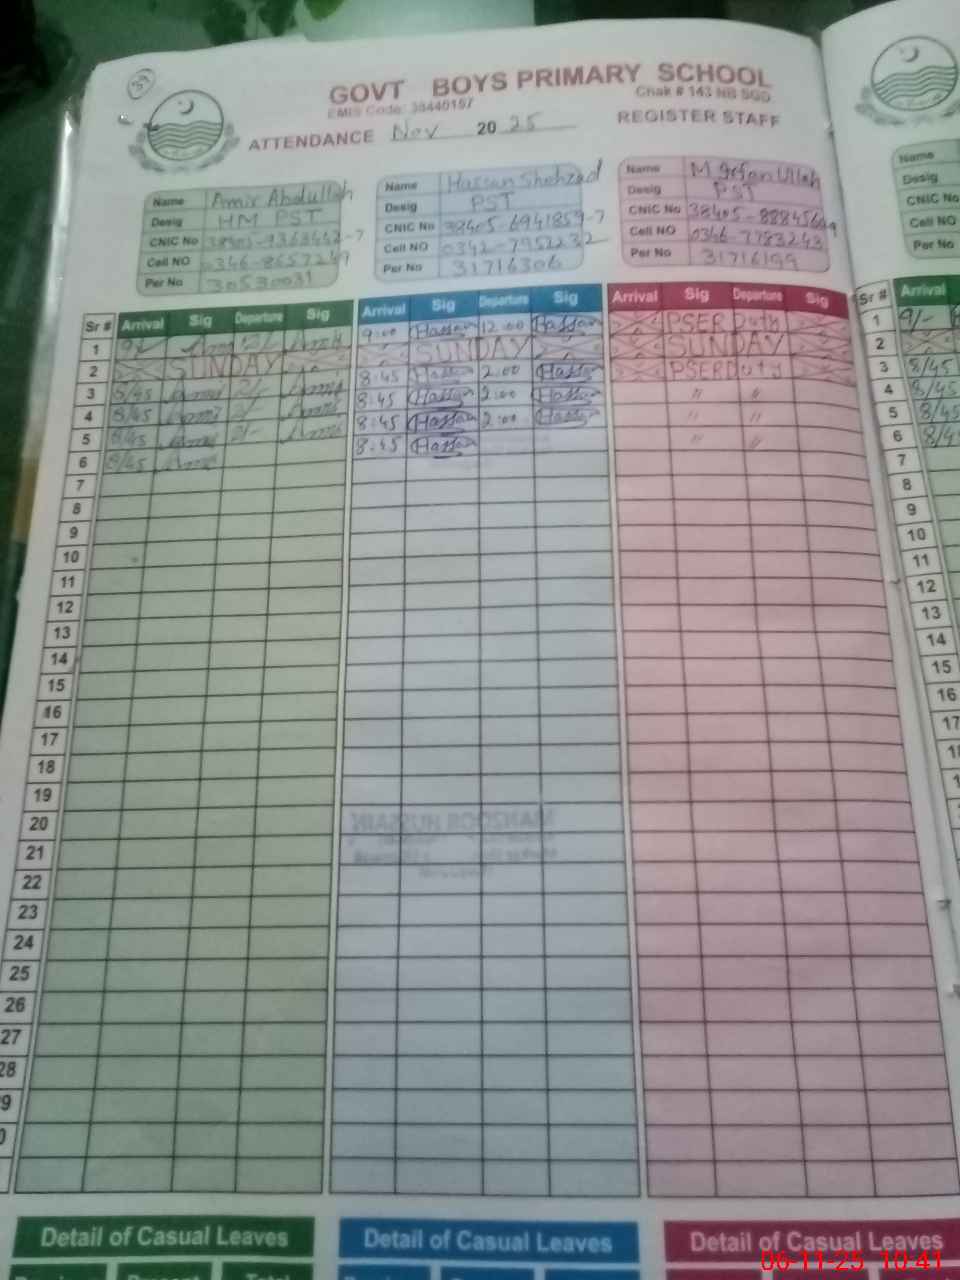 39
GOVT BOYS PRIMARY SCHOOL
EMIS Code: 38440157 Chak # 143 NB SGD
ATTENDANCE Nov 2025 REGISTER STAFF
Name Amir Abdullah
Desig HM PST
CNIC No 38405-9363442-7
Cell NO 0346-8657249
Per No 30530031
Name Hassan Shehzad
Desig PST
CNIC No 38405-6941859-7
Cell NO 0342-7952232
Per No 31716306
Name M Irfan Ullah
Desig PST
CNIC No
Cell NO 0346-7783243
Per No 31716199
Name
Desig
CNIC No
Cell No
Per No
Sr # Arrival Sig Departure Sig Arrival Sig Departure Sig Arrival Sig Departure Sig Sr # Arrival
1 9:00 Hassan 12:00 Hassan PSER Duty 1 9/-
2 SUNDAY SUNDAY SUNDAY 2
3 8/45 2/- 8:45 Hassan 2:00 Hassan PSER Duty 3 8/45
4 8/45 2/- 8:45 Hassan 2:00 Hassan " " 4 8/45
5 8/45 2/- 8:45 Hassan 2:00 Hassan " " 5 8/45
6 8/45 8:45 Hassan " " 6 8/45
7 7
8 8
9 9
10 10
11 11
12 12
13 13
14 14
15 15
16 16
17 17
18
19
20
21
22
23
24
25
26
27
28
MANZOOR HUSSAIN
Detail of Casual Leaves Detail of Casual Leaves Detail of Casual Leaves
06-11-25 10:41